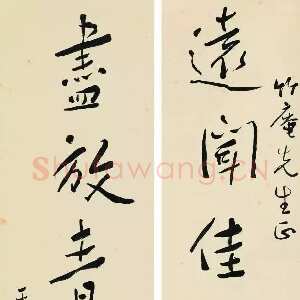 竹庵先生正
遠聞佳
盡放青
Shufawang.CN